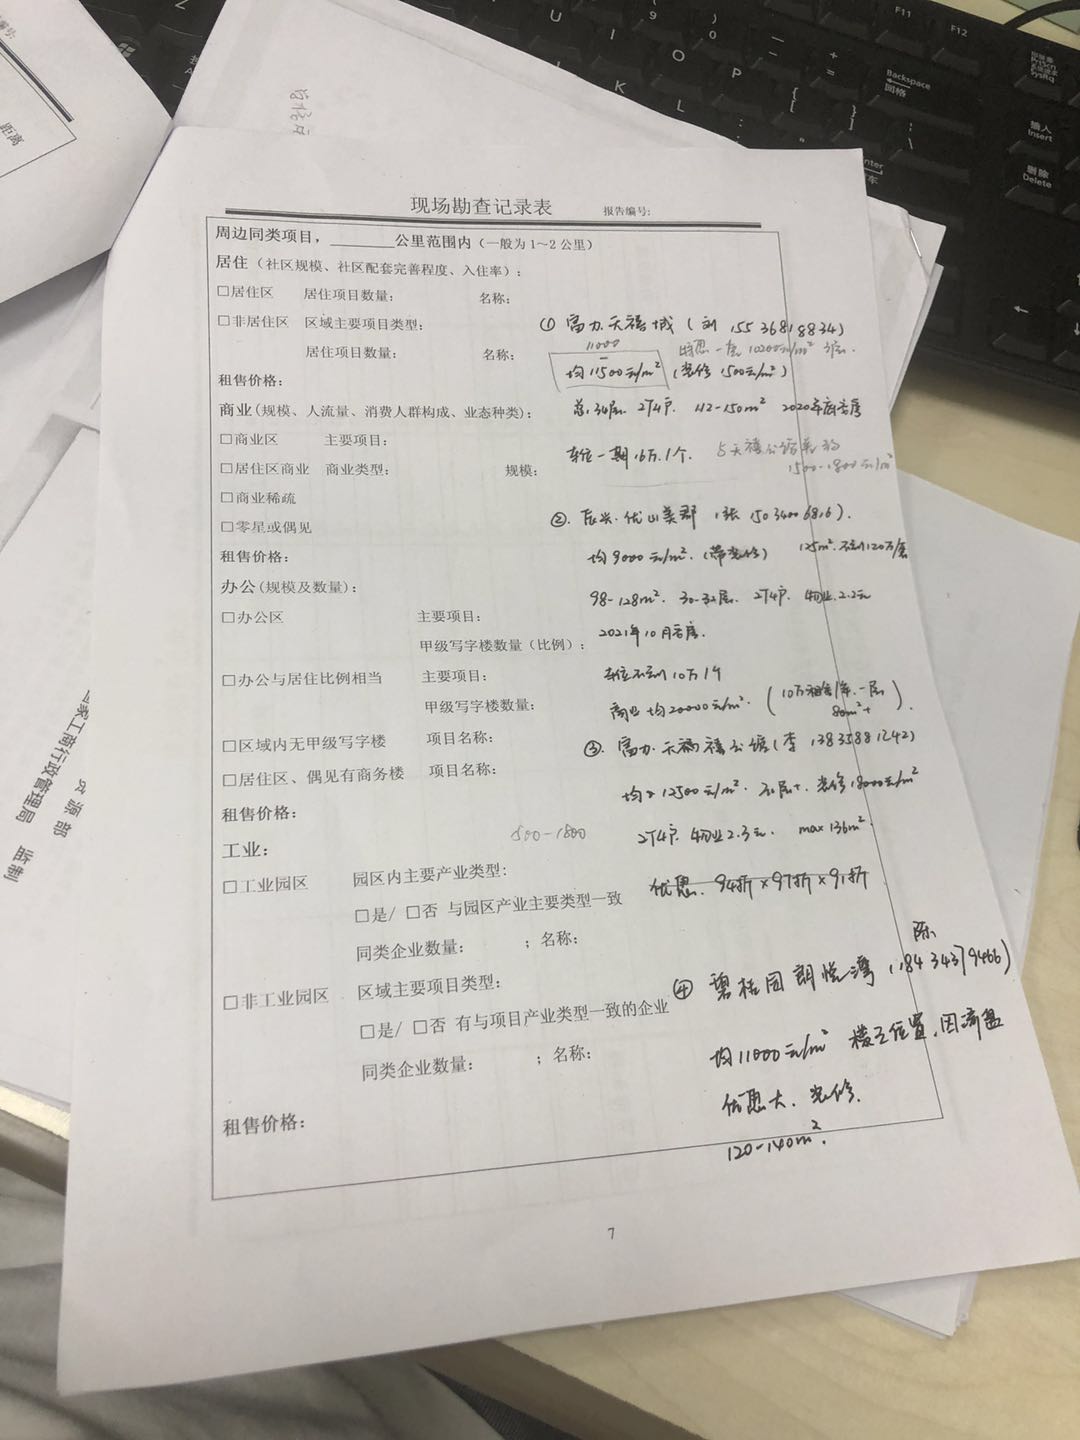 现场勘查记录表 报告编号:
周边同类项目，________公里范围内（一般为1~2公里）
居住（社区规模、社区配套完善程度、入住率）：
□居住区 居住项目数量： 名称：
□非居住区 区域主要项目类型： ① 富力·天禧城（刘 15536818834）
11000 一层 10200元/m²
居住项目数量： 名称：
均11500元/m² （装修1500元/m²）
租售价格：
商业(规模、人流量、消费人群构成、业态种类)： 总34层. 2T4户. 112-150m² 2020年底交房
□商业区 主要项目：
车位一期16万.1个.
1500-1800元/m²
□居住区商业 商业类型： 规模：
□商业稀疏
□零星或偶见 ②. 辰兴·优山美郡 （张 15034006816）.
租售价格： 均9000元/m².（带装修） 125m². 不到120万/套
办公(规模及数量)： 98-128m². 30-32层. 2T4户. 物业.2.2元
□办公区 主要项目： 2021年10月交房.
甲级写字楼数量（比例）：
□办公与居住比例相当 主要项目： 车位不到10万1个
甲级写字楼数量： 商业均20000元/m². （10万租金1年.一层 80m²+）.
□区域内无甲级写字楼 项目名称： ③. 富力·天禧公馆（李 13835881242）
□居住区、偶见有商务楼 项目名称：
均12500元/m². 装修1800元/m²
租售价格：
500-1800 2T4户. 物业2.3元. max 136m².
工业：
□工业园区 园区内主要产业类型: 优惠. 94折×97折×91折
□是/ □否 与园区产业主要类型一致
同类企业数量： ；名称：
陈
④ 碧桂园朗悦湾（18434379466）
□非工业园区 区域主要项目类型：
□是/ □否 有与项目产业类型一致的企业
均11000元/m² 楼王位置.因清盘
同类企业数量： ；名称：
优惠大. 装修.
租售价格：
120-140m².
7
距离
国家工商行政管理局 监制
F11
F12
Backspace
回格
PrtScn
SysRq
插入
Insert
删除
Delete
U
I
O
P
K
L